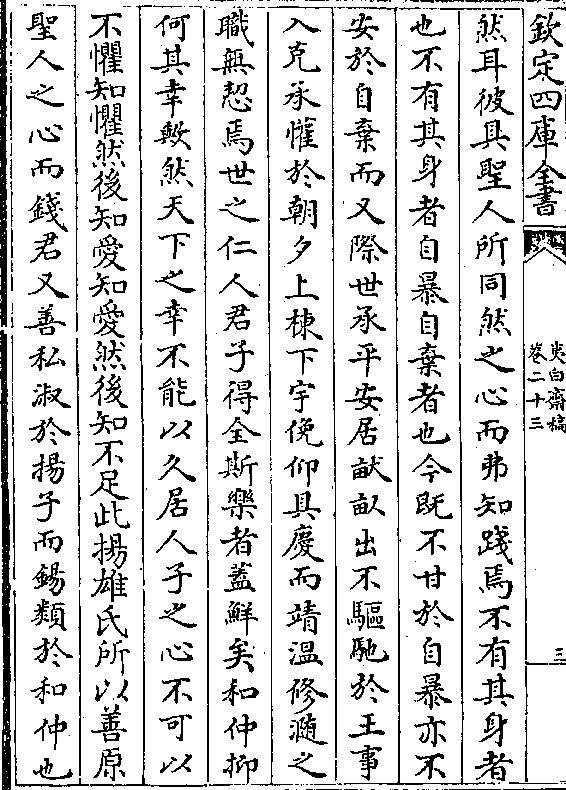 欽定四庫全書
夷白齋稿
卷二十三
三
然耳彼具聖人所同然之心而弗知踐焉不有其身者
也不有其身者自暴自棄者也今既不甘於自暴亦不
安於自棄而又際世承平安居畎畝出不驅馳於王事
入克承懽於朝夕上棟下宇俛仰具慶而靖溫修瀡之
職無愆焉世之仁人君子得全斯樂者蓋鮮矣和仲抑
何其幸歟然天下之幸不能以久居人子之心不可以
不懼知懼然後知愛知愛然後知不足此揚雄氏所以善原
聖人之心而錢君又善私淑於揚子而錫類於和仲也